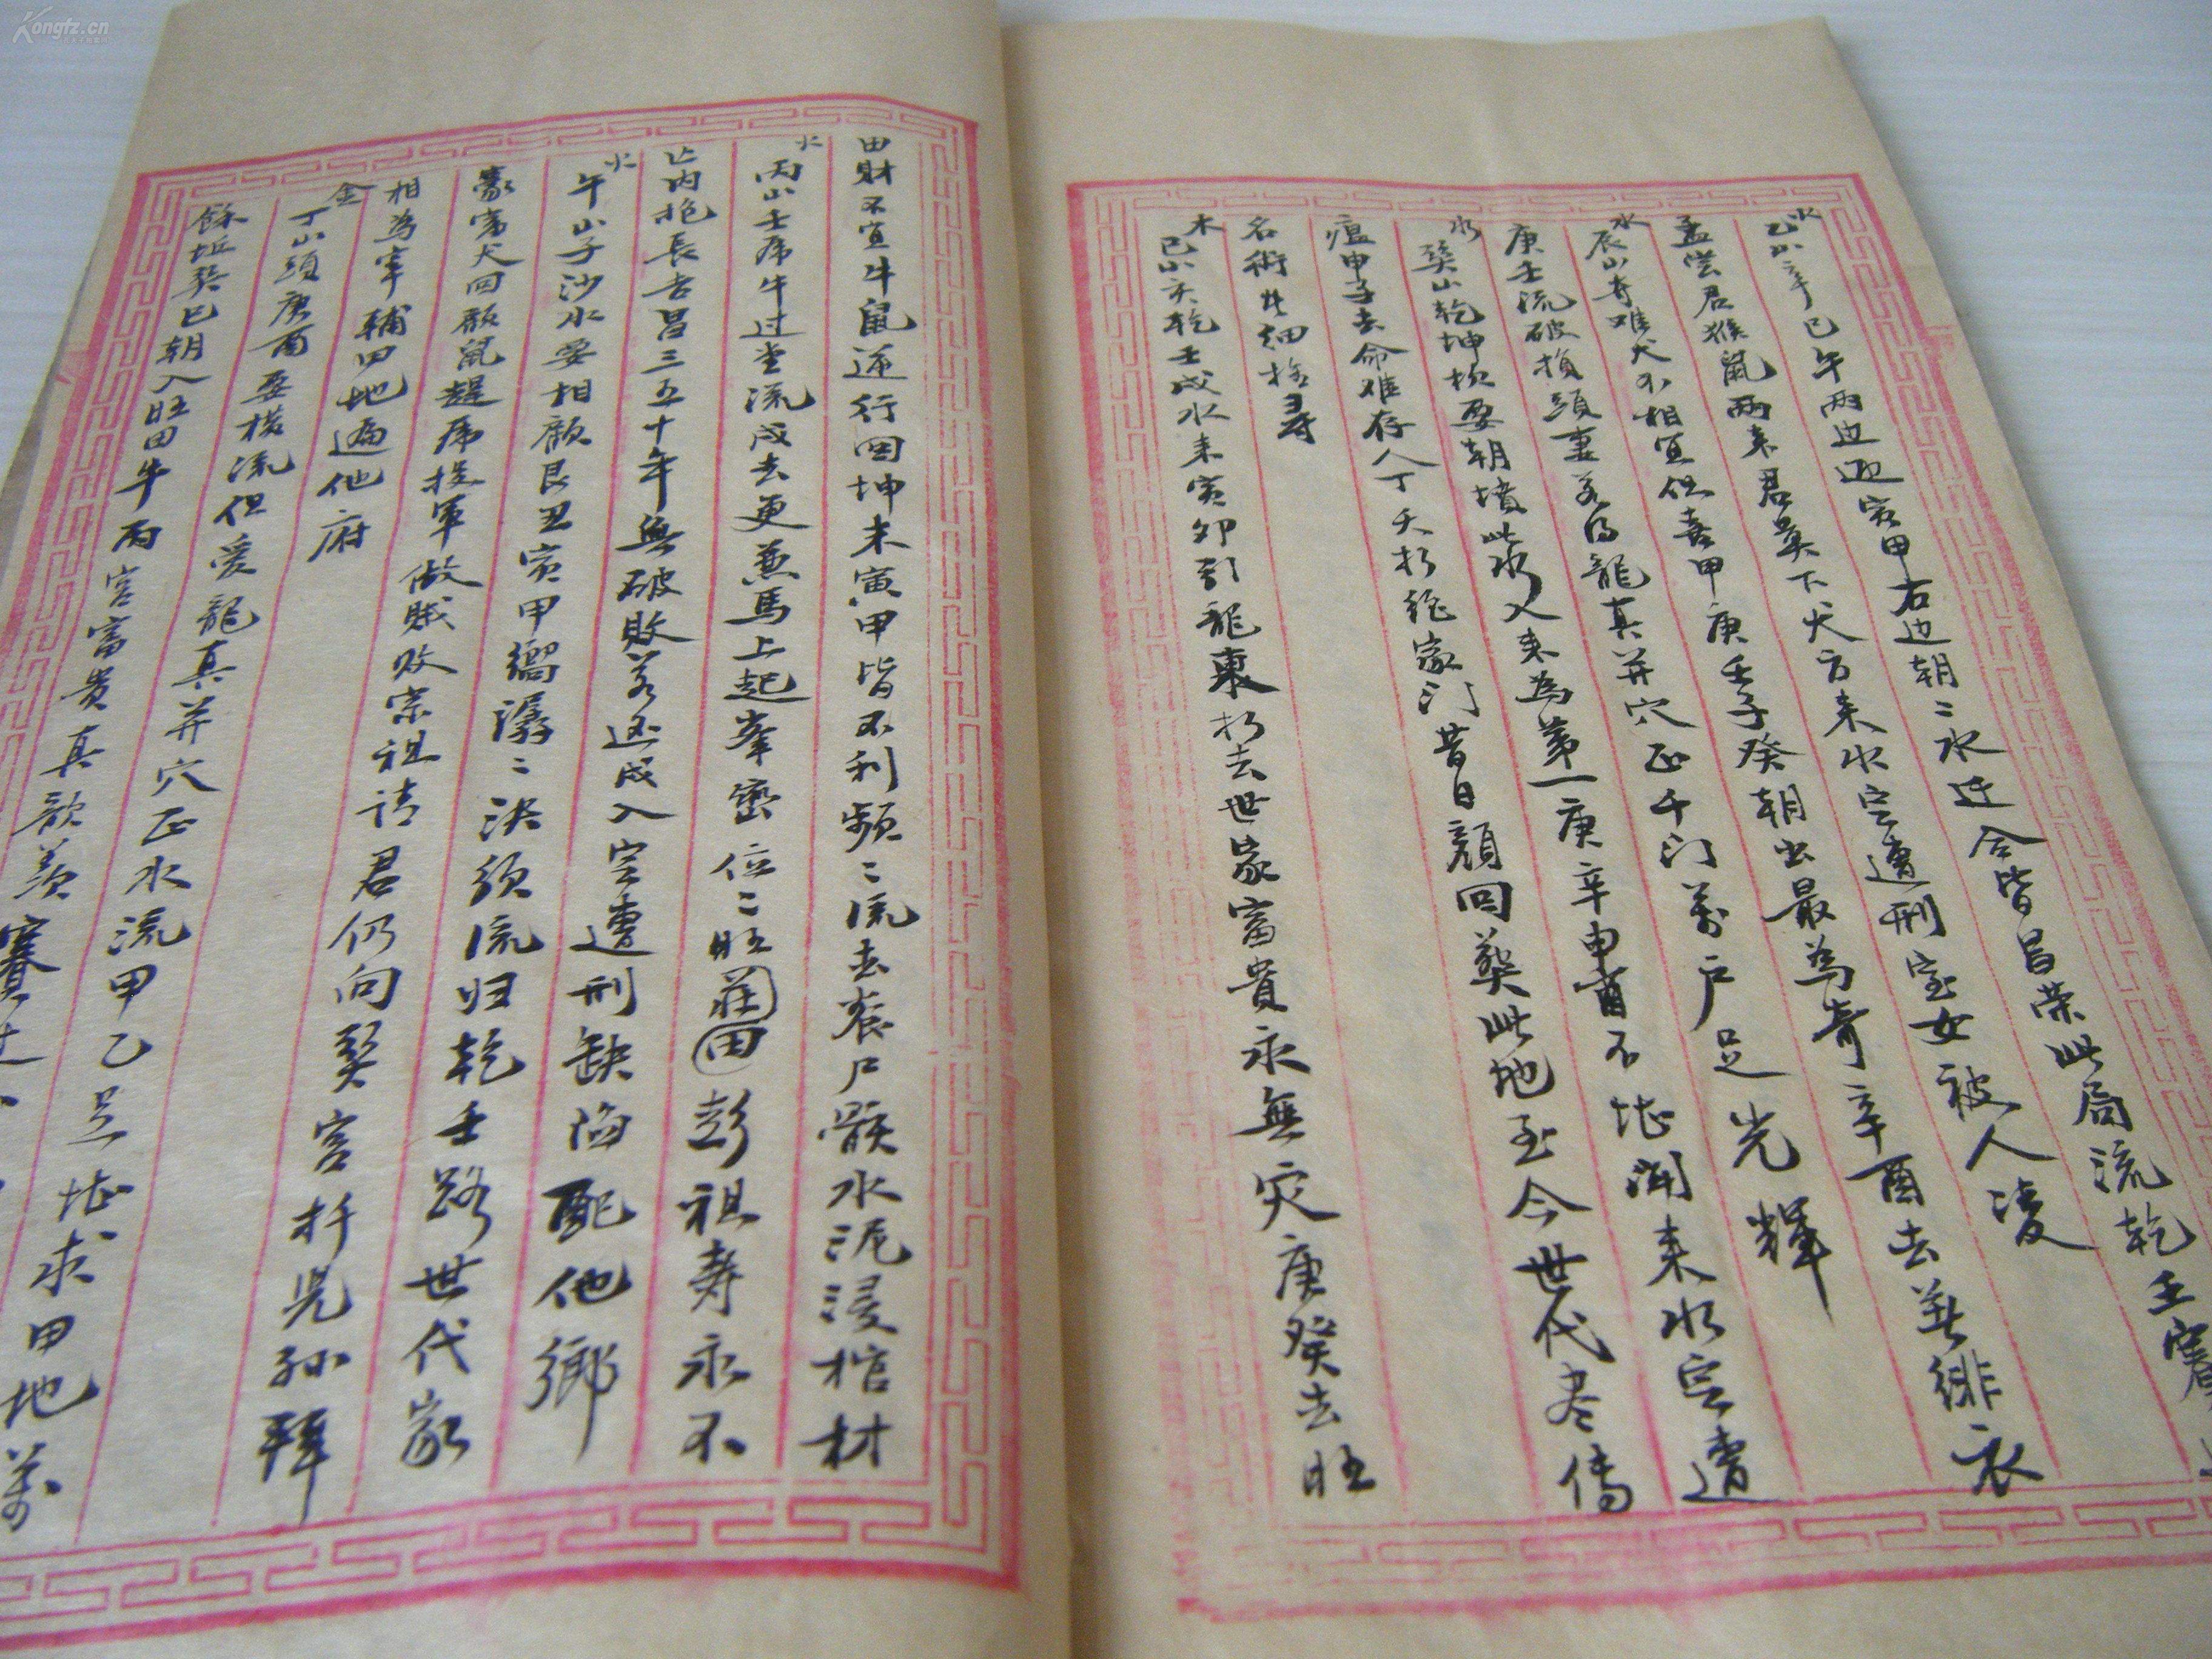 Kongfz.cn
水
乙山辛巳午两边迎寅甲右边朝二水迁合皆昌荣此局流乾壬
孟尝君猴鼠两来君莫下犬方来水定遭刑室女被人凌
水
辰山寺难犬不相宜但喜甲庚壬子癸朝出最为奇辛酉去着绯衣
庚壬流破损頭妻若得龍真并穴正千门萬户足光輝
水
巽山乾坤坎要朝墳此水入来為第一庚辛申酉不堪闻来水定遭
瘟申子去命难存人丁夭折絶家门昔日顔回葵此地至今世代盡傳
名術士細推尋
木
巳山亥乾壬戌水来寅卯引龍東行去世家富貴永無灾庚癸去旺
田財不宜牛鼠逆行囬坤未寅甲皆不利频二流去養尸骸水泥浸棺材
水
丙山壬席牛过堂流戌去更兼馬上起峯巒位二旺莊田彭祖寿永不
亡内抱長吉昌三五十年無破敗若逆成入定遭刑缺陷配他鄉
水
午山子沙水要相顧艮丑寅甲嚮潺二决須流归乾壬路世代家
豪富犬囬顧鼠趕席投軍做賊败宗祖请君仍向巽宫扦兒孙拜
相為宰輔四地遍他府
金
丁山頭庚酉要横流但爱龍真并穴正水流甲乙足堪求甲地萬
餘坵巽巳朝入旺田牛丙宫富貴真歆羡